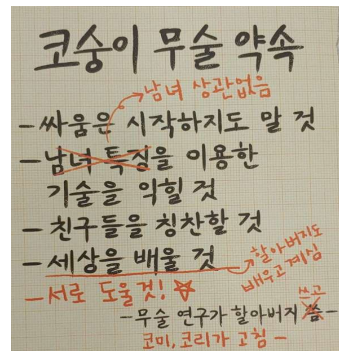 코숭이 무술 약속
남녀 상관없음
-싸움은 시작하지도 말 것
-남녀 특징을 이용한
기술을 익힐 것
-친구들을 칭찬할 것
-세상을 배울 것
할아버지도
배우고 계심
-서로 도울것! ☆
쓰고
-무술 연구가 할아버지 씀-
코미, 코리가 고침-